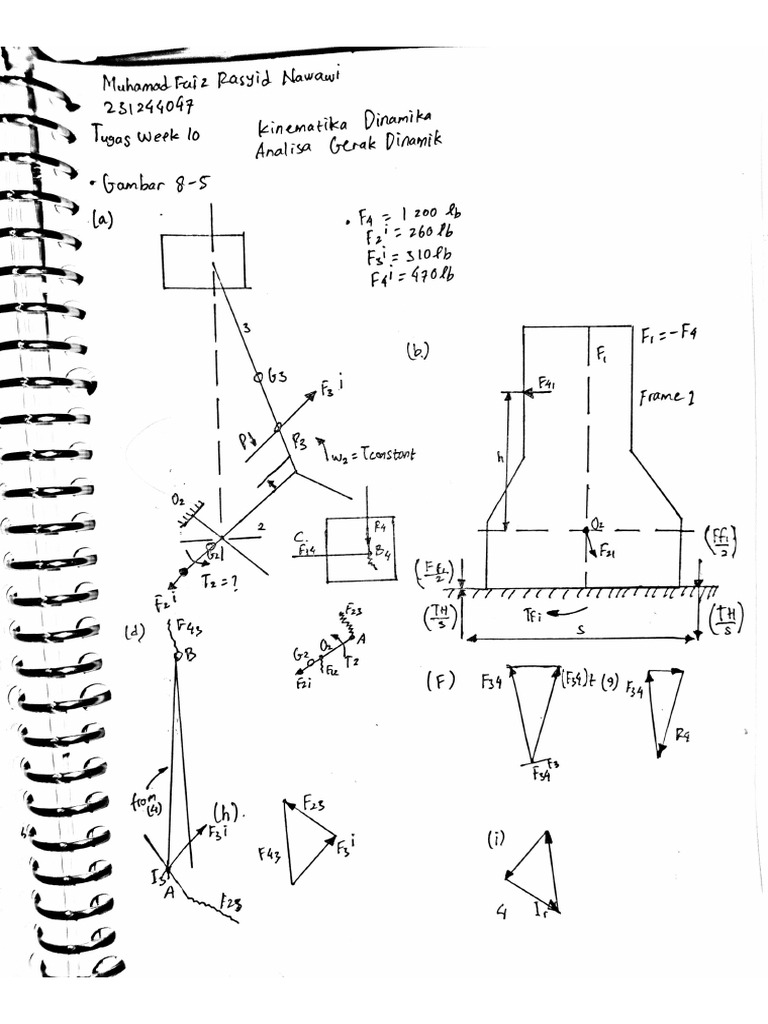 Muhamad Faiz Rasyid Nawawi
231244047
Tugas Week 10
Kinematika Dinamika
Analisa Gerak Dinamik
• Gambar 8-5
(a)
• F4 = 1 200 lb
F2 i = 260 lb
F3 i = 310 lb
F4 i = 470 lb
3
G3
F3 i
P
P3
w2 = Tconstant
O2
2
G2
T2 = ?
F2 i
C.
F14
F4
B4
(b.)
F1 = -F4
F1
F41
Frame 1
h
O2
F21
S
(d)
F43
B
from (4)
F3 i
A
F23
F23
O2
A
G2
T2
F12
F2i
(F)
F34
(F34)t
F34
(g)
F34
R4
(h).
F23
F43
F3 i
(i)
4